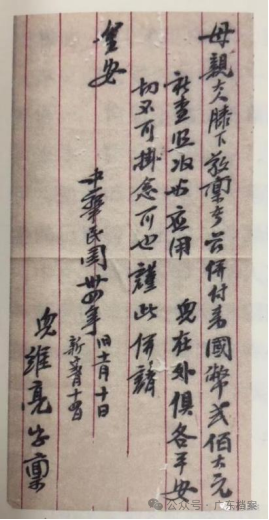 母親大人膝下敬禀者兹併付来國幣弍佰大元
祈查照收应用 兒在外俱各平安
切不可掛念可也 謹此併請
安
中華民國卅四年 旧十一月十日
新十二月十四日
兒維亮字禀
公众号·广东档案